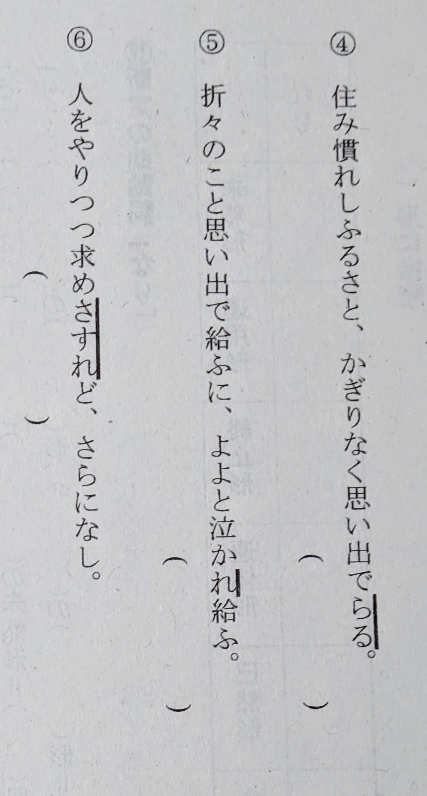 ④ 住み慣れしふるさと、かぎりなく思い出でらる。
（　　　）
⑤ 折々のこと思い出で給ふに、よよと泣かれ給ふ。
（　　　）
⑥ 人をやりつつ求めさすれど、さらになし。
（　　　）